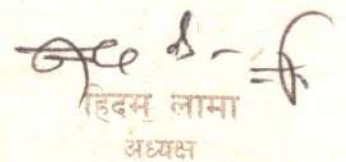 हिदम् लामा
अध्यक्ष